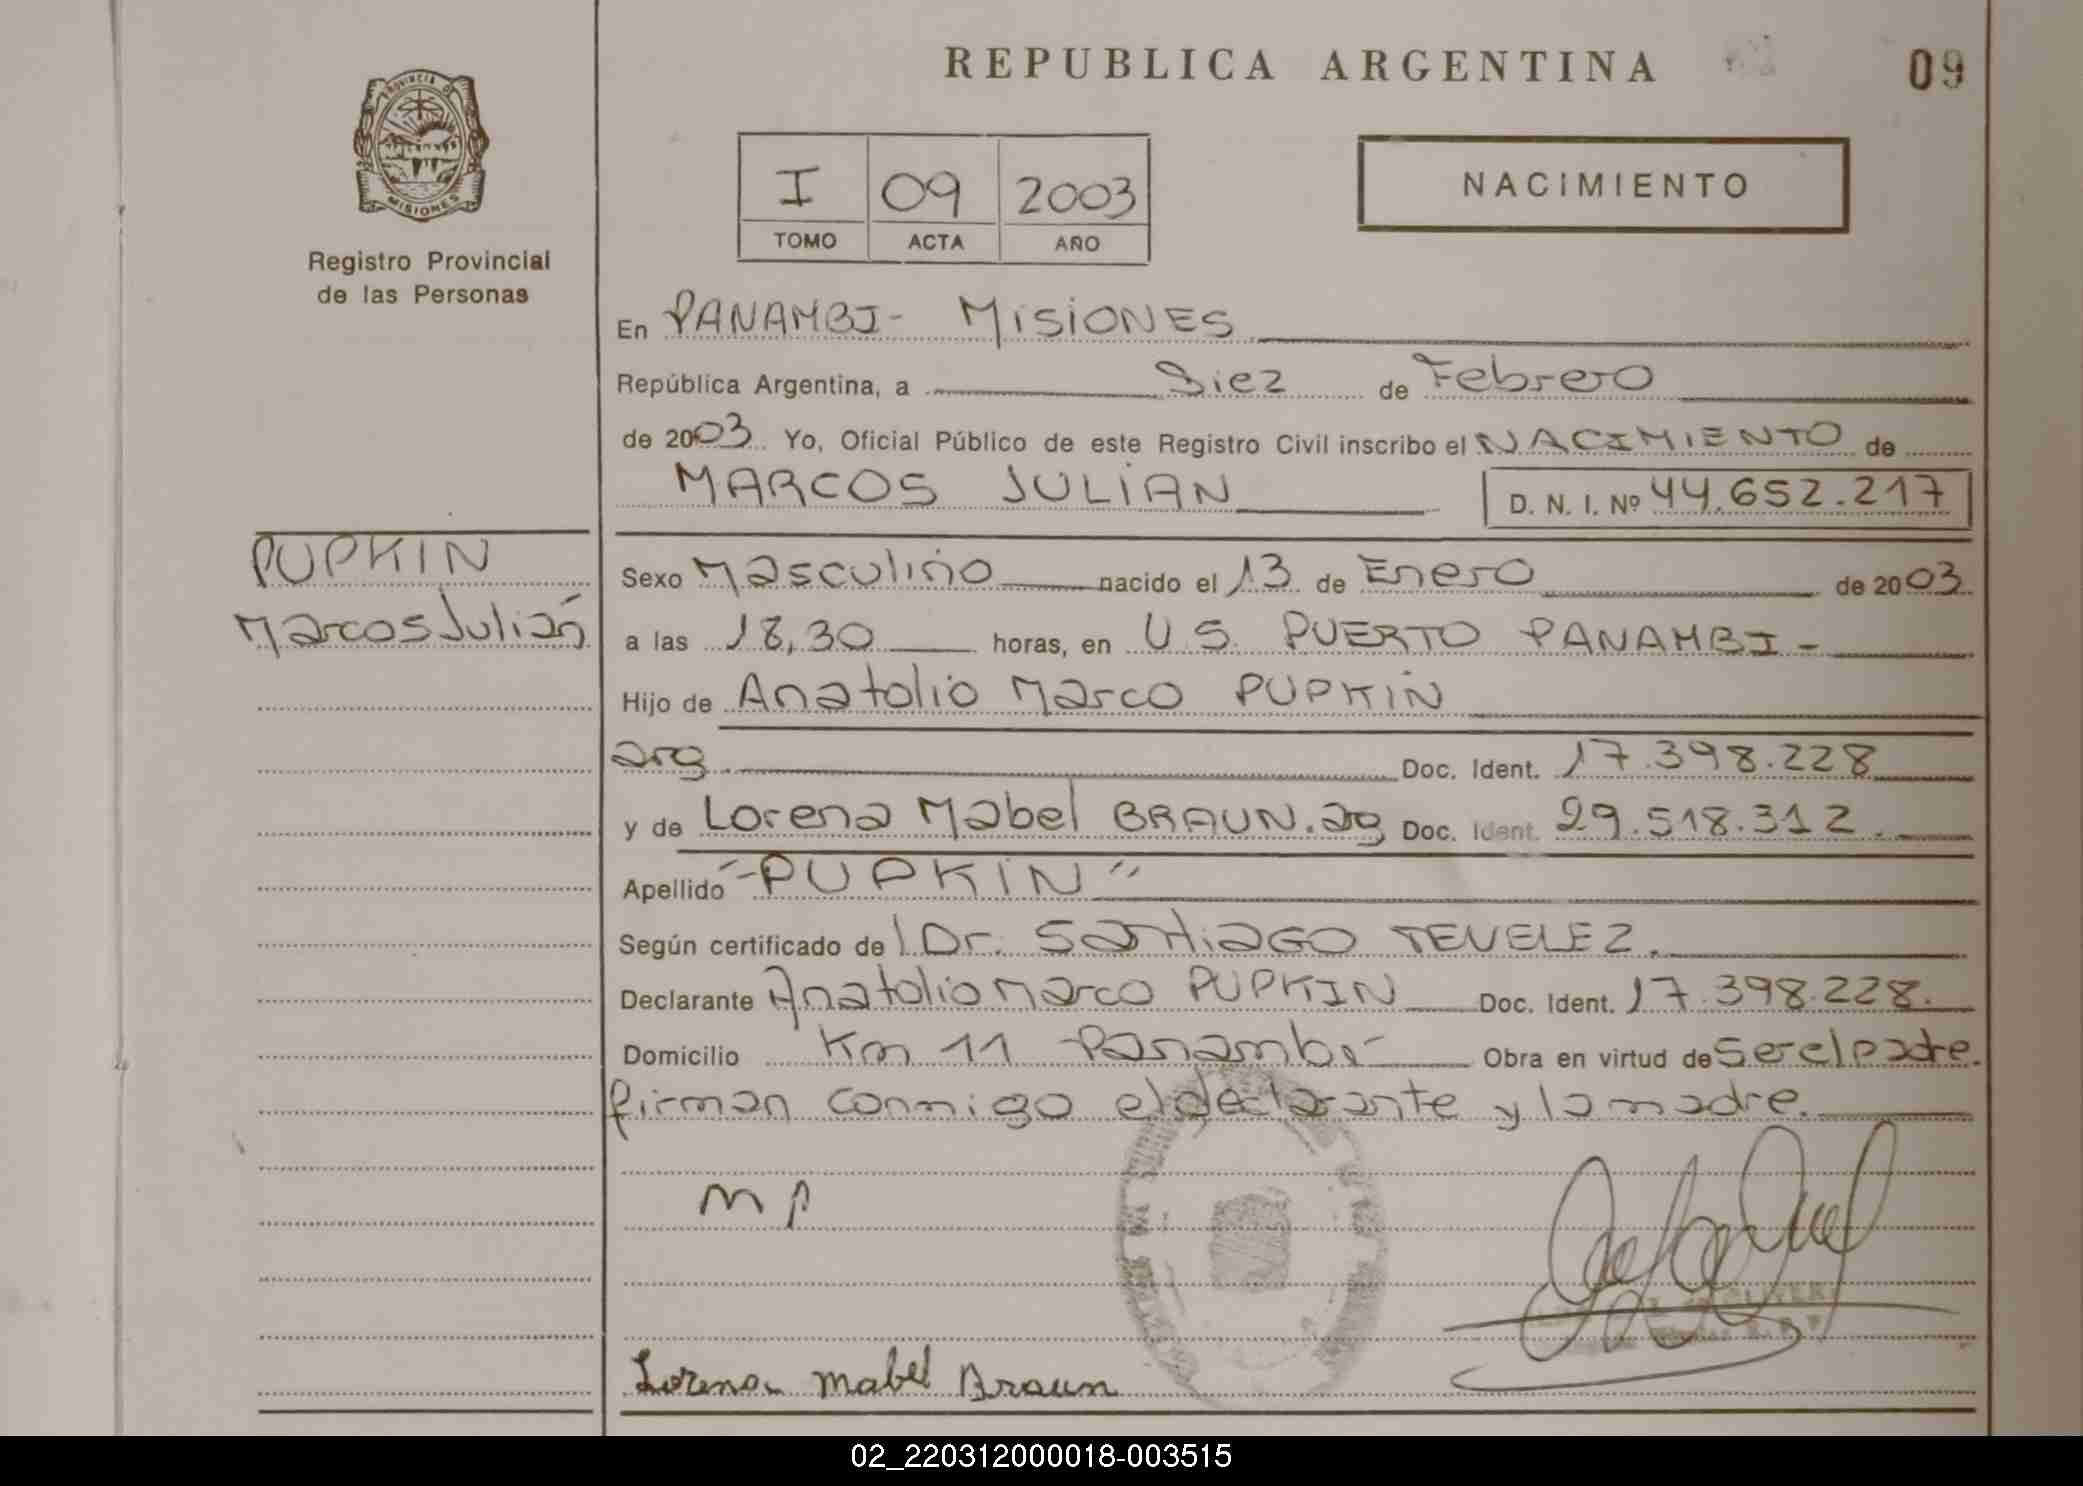 REPUBLICA ARGENTINA
09
PROVINCIA DE
MISIONES
Registro Provincial
de las Personas
I 09 2003
TOMO ACTA AÑO
NACIMIENTO
En PANAMBI - MISIONES
República Argentina, a Diez de Febrero
de 2003 Yo, Oficial Público de este Registro Civil inscribo el NACIMIENTO de
MARCOS JULIAN D. N. I. Nº 44.652.217
PUPKIN
Marcos Julián
Sexo Masculino nacido el 13 de Enero de 2003
a las 18,30 horas, en U.S. PUERTO PANAMBI -
Hijo de Anatolio Marco PUPKIN
arg Doc. Ident. 17.398.228
y de Lorena Mabel BRAUN. arg Doc. Ident. 29.518.312.
Apellido "PUPKIN"
Según certificado de Dr. SANTIAGO TEVELEZ.
Declarante Anatolio Marco PUPKIN Doc. Ident. 17.398.228.
Domicilio Km 11 Panambí Obra en virtud de Ser el padre.
firman conmigo el declarante y la madre.
M P
Lorena Mabel Braun
02_220312000018-003515